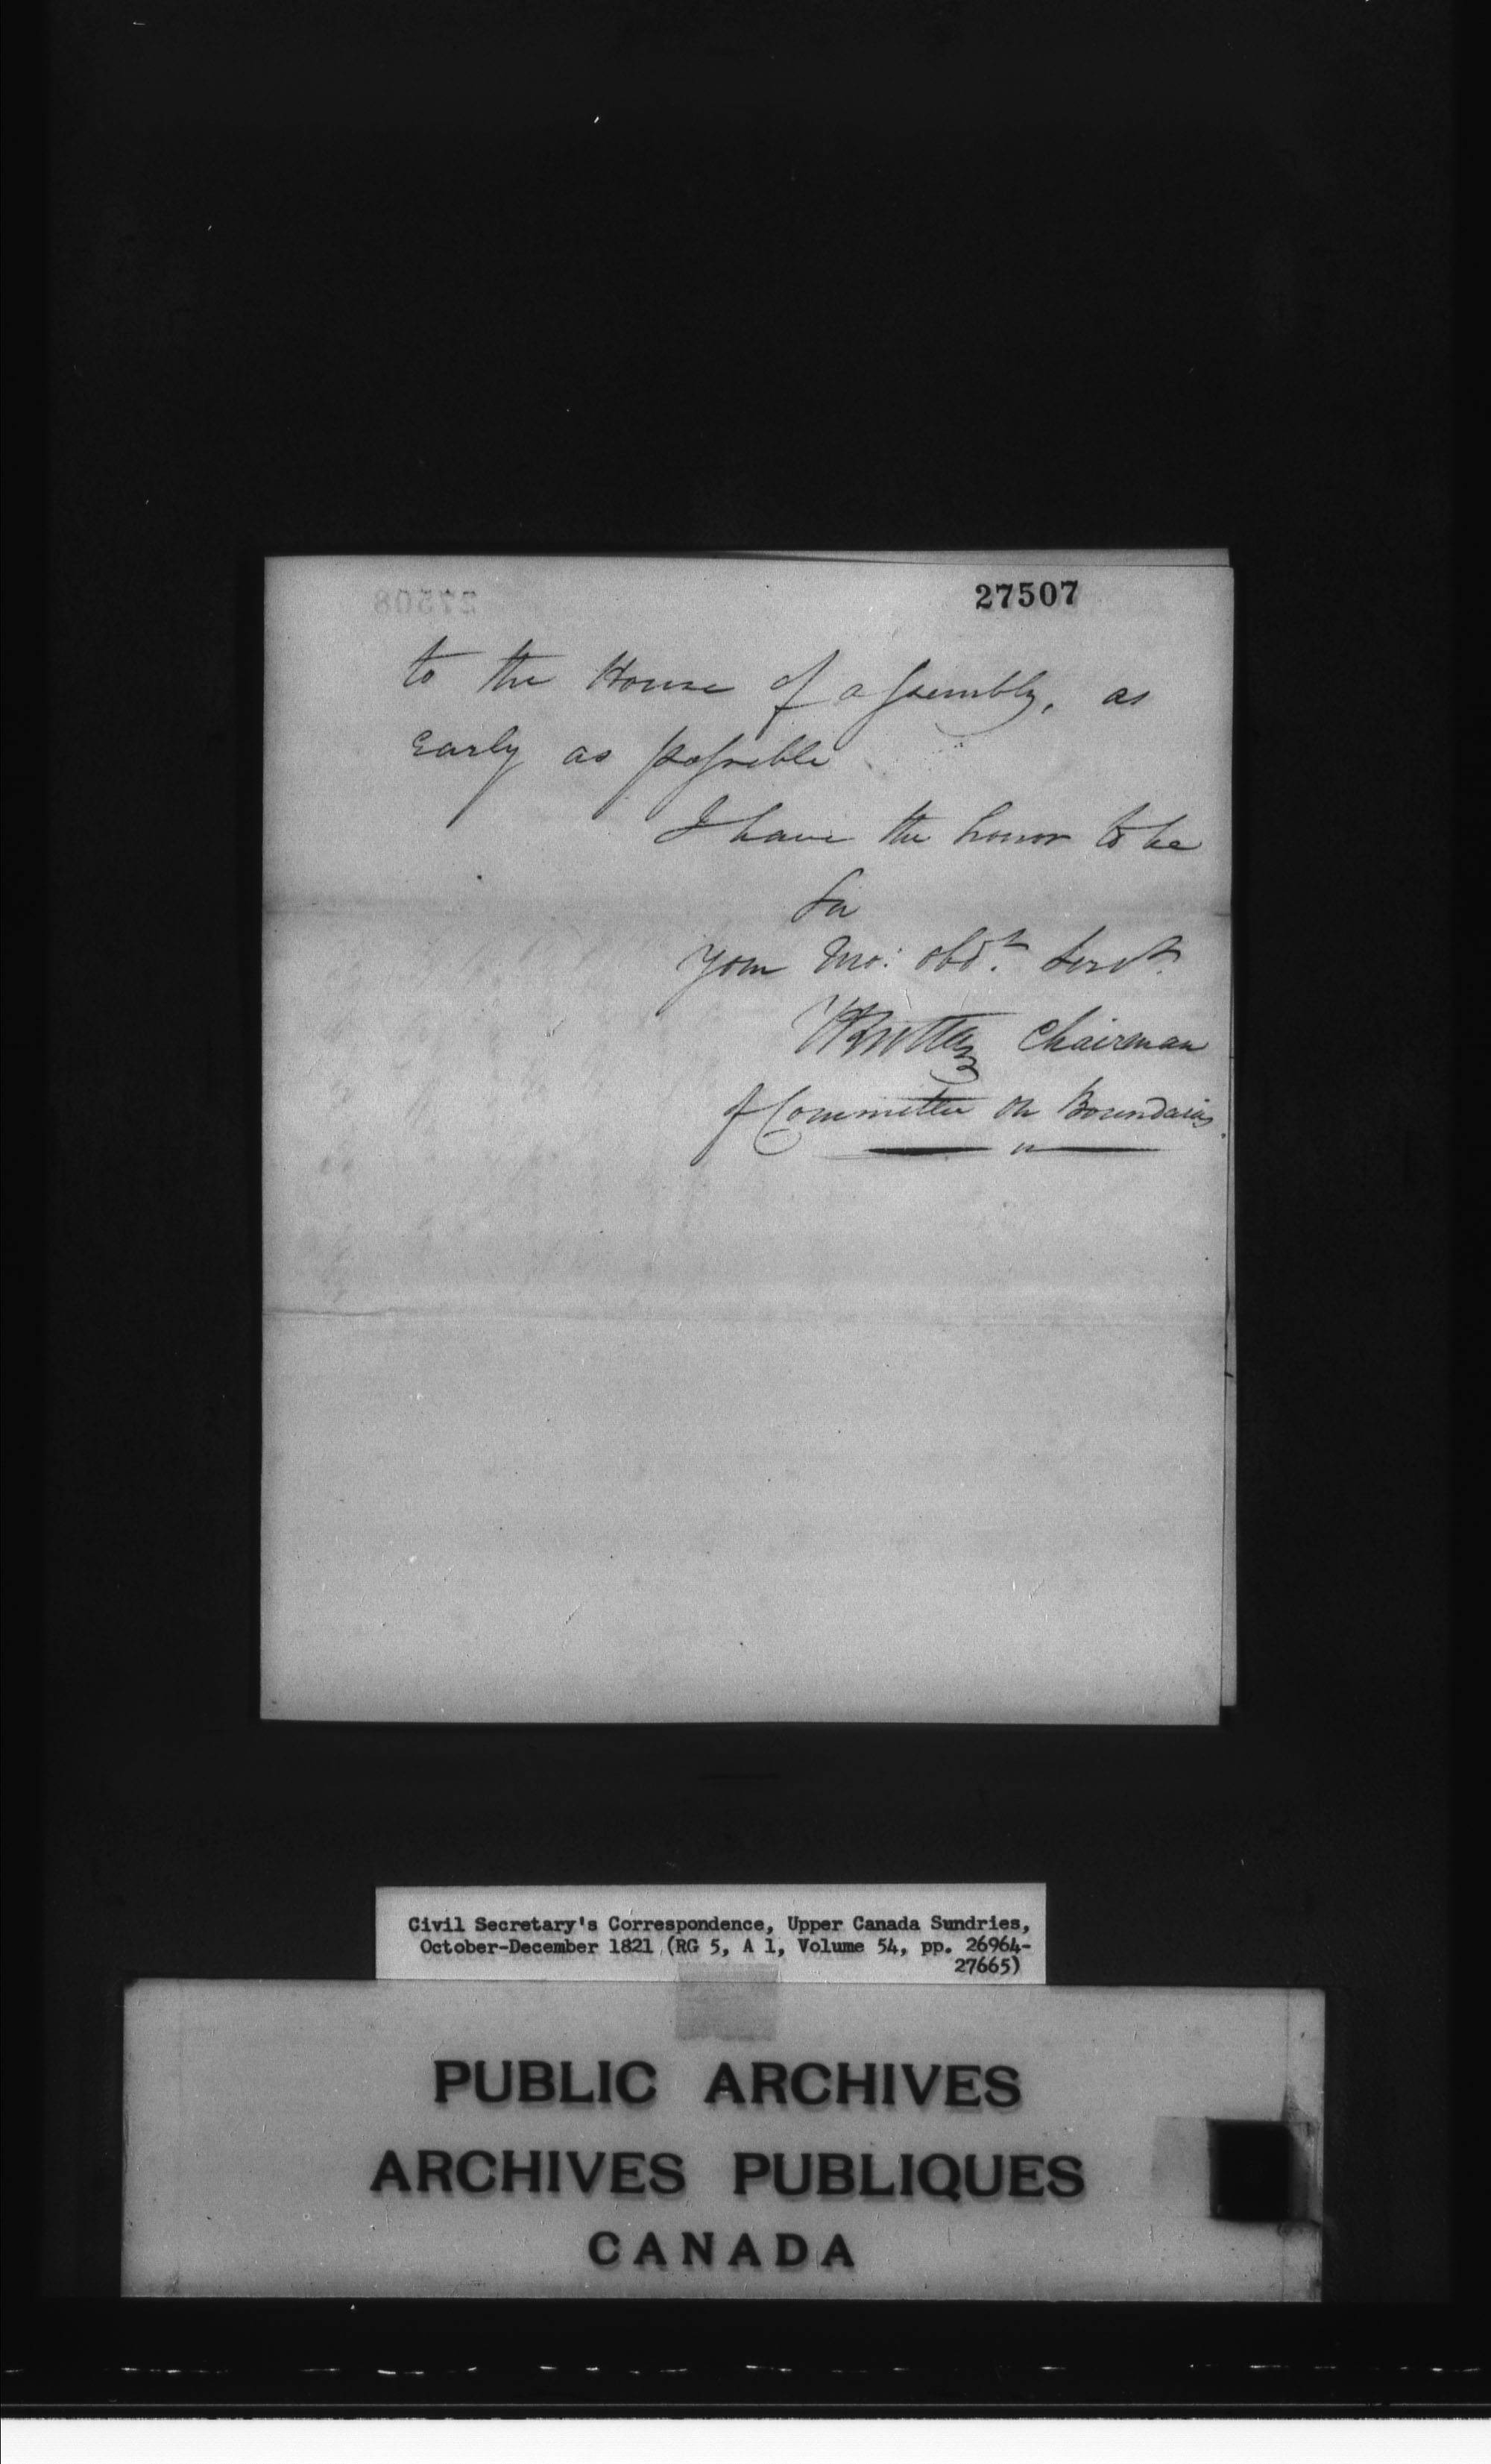 27507
to the House of assembly, as
early as possible
I have the honor to be
Sir
Your Mo: obdt. Servt.
Chairman
of Committee on Boundaries.
Civil Secretary's Correspondence, Upper Canada Sundries,
October-December 1821 (RG 5, A 1, Volume 54, pp. 26964-
27665)
PUBLIC ARCHIVES
ARCHIVES PUBLIQUES
CANADA